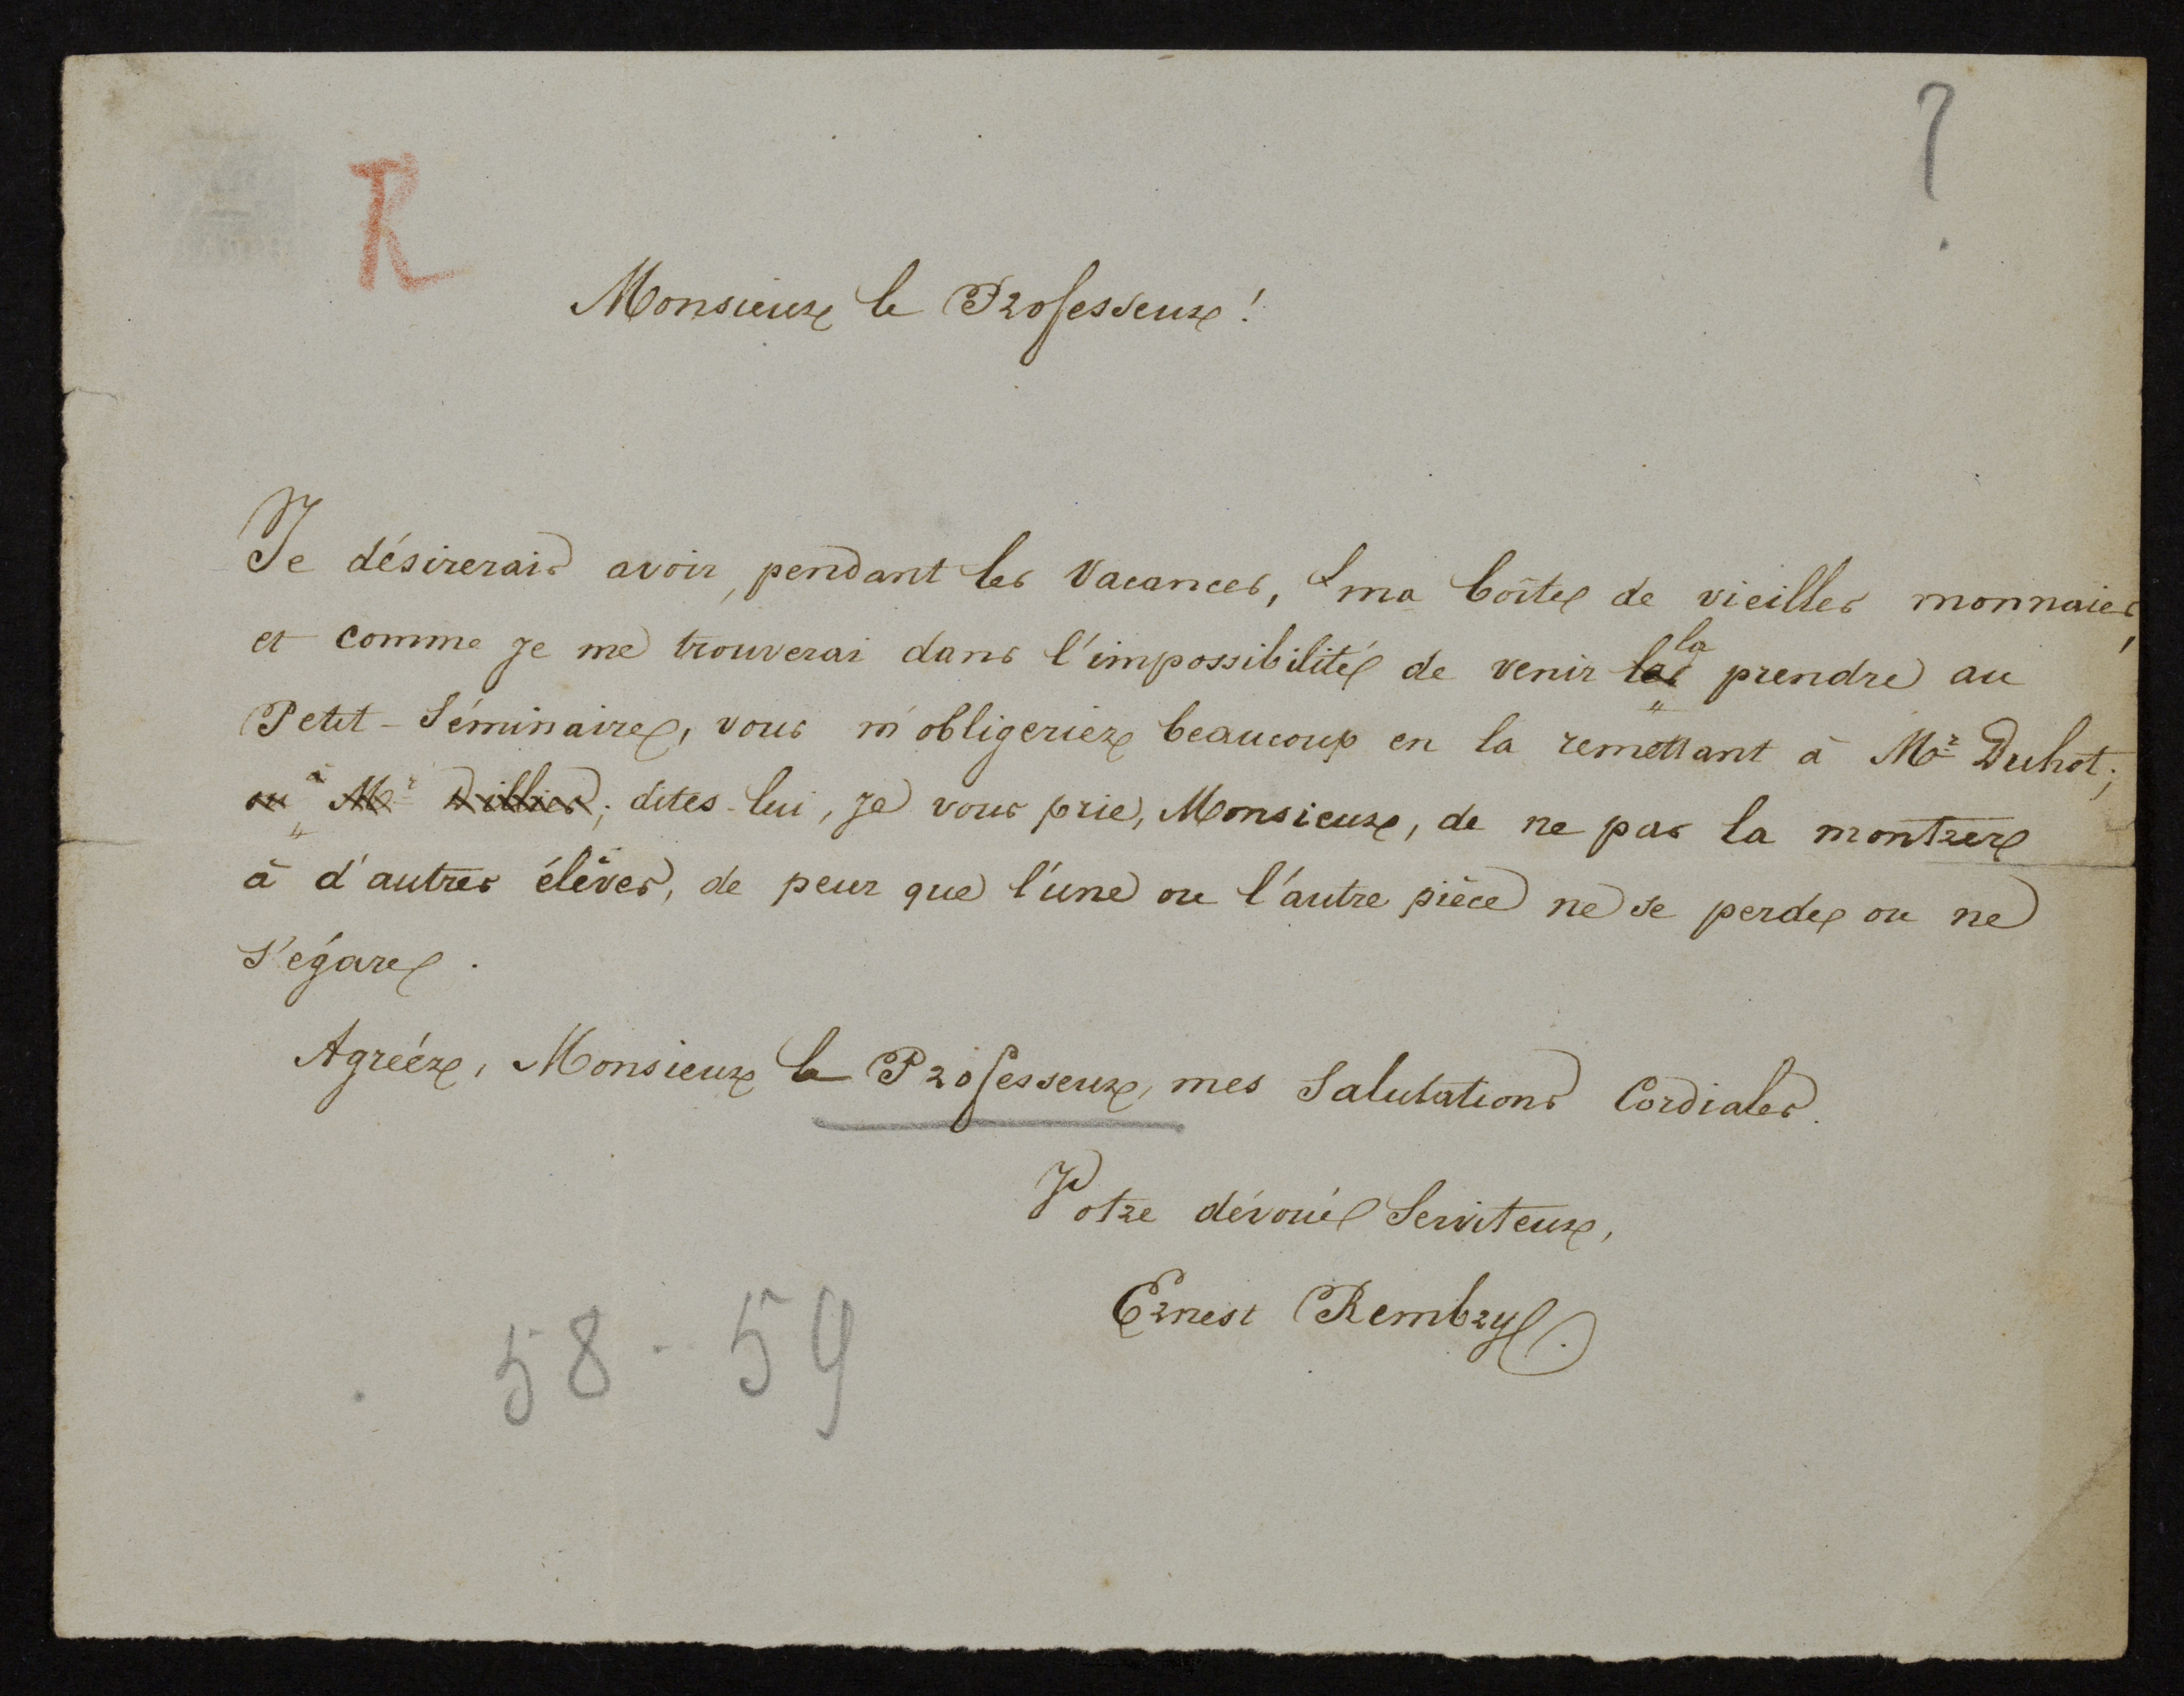 R
?
Monsieur le Professeur!
Je désirerais avoir, pendant les Vacances, ma boîte de vieilles monnaies,
et comme je me trouverai dans l'impossibilité de venir la prendre au
Petit-Séminaire, vous m'obligeriez beaucoup en la remettant à Mr Duhot;
ou à Mr Dillies; dites-lui, je vous prie, Monsieur, de ne pas la montrer
à d'autres élèves, de peur que l'une ou l'autre pièce ne se perde ou ne
s'égare.
Agréez, Monsieur le Professeur, mes Salutations Cordiales.
Votre dévoué Serviteur,
Ernest Rembry.
58-59